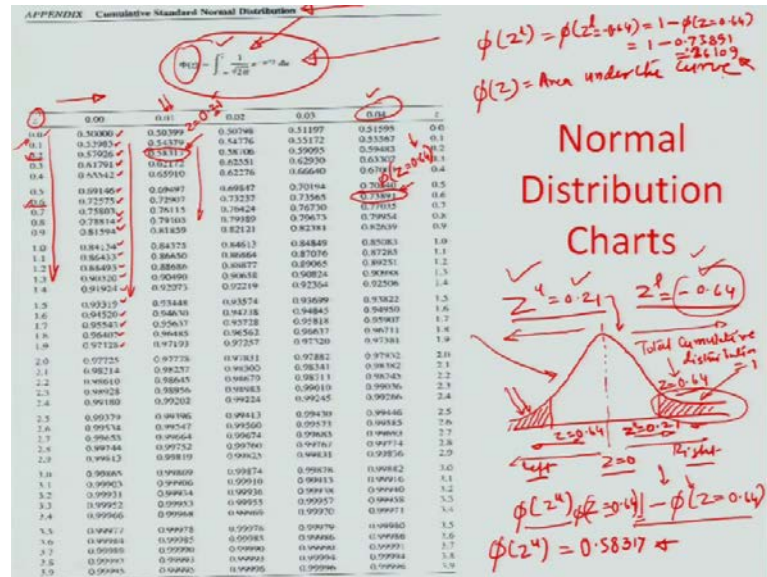 APPENDIX Cumulative Standard Normal Distribution
z 0.00 0.01 0.02 0.03 0.04 z
z=0.21
0.0 0.50000 0.50399 0.50798 0.51197 0.51595 0.0
0.1 0.53983 0.54379 0.54776 0.55172 0.55567 0.1
0.2 0.57926 0.58317 0.58706 0.59095 0.59483
0.3 0.61791 0.62172 0.62551 0.62930 0.63307 0.3
0.4 0.65542 0.65910 0.62276 0.66640
ϕ(z=0.64)
0.5 0.69146 0.69497 0.69847 0.70194 0.5
0.72575 0.72907 0.73237 0.73565 0.73891 0.6
0.7 0.75803 0.76115 0.76424 0.76730 0.77035 0.7
0.8 0.78814 0.79103 0.79389 0.79673 0.79954 0.8
0.9 0.81594 0.81859 0.82121 0.82381 0.82639 0.9
1.0 0.84134 0.84375 0.84613 0.84849 0.85083 1.0
1.1 0.86433 0.86650 0.86864 0.87076 0.87285 1.1
1.2 0.88493 0.88686 0.88877 0.89065 0.89251 1.2
1.3 0.90320 0.90490 0.90658 0.90824 0.90988 1.3
1.4 0.91924 0.92073 0.92219 0.92364 0.92506 1.4
1.5 0.93319 0.93448 0.93574 0.93699 0.93822 1.5
1.6 0.94520 0.94630 0.94738 0.94845 0.94950 1.6
1.7 0.95543 0.95637 0.95728 0.95818 0.95907 1.7
1.8 0.96407 0.96485 0.96562 0.96637 0.96711 1.8
1.9 0.97128 0.97193 0.97257 0.97320 0.97381 1.9
2.0 0.97725 0.97778 0.97831 0.97882 0.97932 2.0
2.1 0.98214 0.98257 0.98300 0.98341 0.98382 2.1
2.2 0.98610 0.98645 0.98679 0.98713 0.98745 2.2
2.3 0.98928 0.98956 0.98983 0.99010 0.99036 2.3
2.4 0.99180 0.99202 0.99224 0.99245 0.99266 2.4
2.5 0.99379 0.99396 0.99413 0.99430 0.99446 2.5
2.6 0.99534 0.99547 0.99560 0.99573 0.99585 2.6
2.7 0.99653 0.99664 0.99674 0.99683 0.99693 2.7
2.8 0.99744 0.99752 0.99760 0.99767 0.99774 2.8
2.9 0.99813 0.99819 0.99825 0.99831 0.99836 2.9
3.0 0.99865 0.99874 0.99882 3.0
3.1 0.99903 0.99906 0.99910 0.99913 0.99916 3.1
3.2 0.99931 0.99934 0.99936 0.99938 0.99940 3.2
3.3 0.99952 0.99953 0.99955 0.99957 0.99958
3.4 0.99966 0.99968 0.99969 0.99970 0.99971
ϕ(zˡ) = ϕ(zˡ=-0.64) = 1 - ϕ(z=0.64)
= 1 - 0.73891
= .26109
ϕ(z) = Area under the curve
Normal
Distribution
Charts
zᵘ = 0.21 zˡ = -0.64
Total Cumulative
distribution
= 1
z=0.64
z=0.64 zᵘ=0.21
Left z=0 Right
ϕ(zᵘ) ϕ(z=0.64) 1 - ϕ(z=0.64)
ϕ(zᵘ) = 0.58317